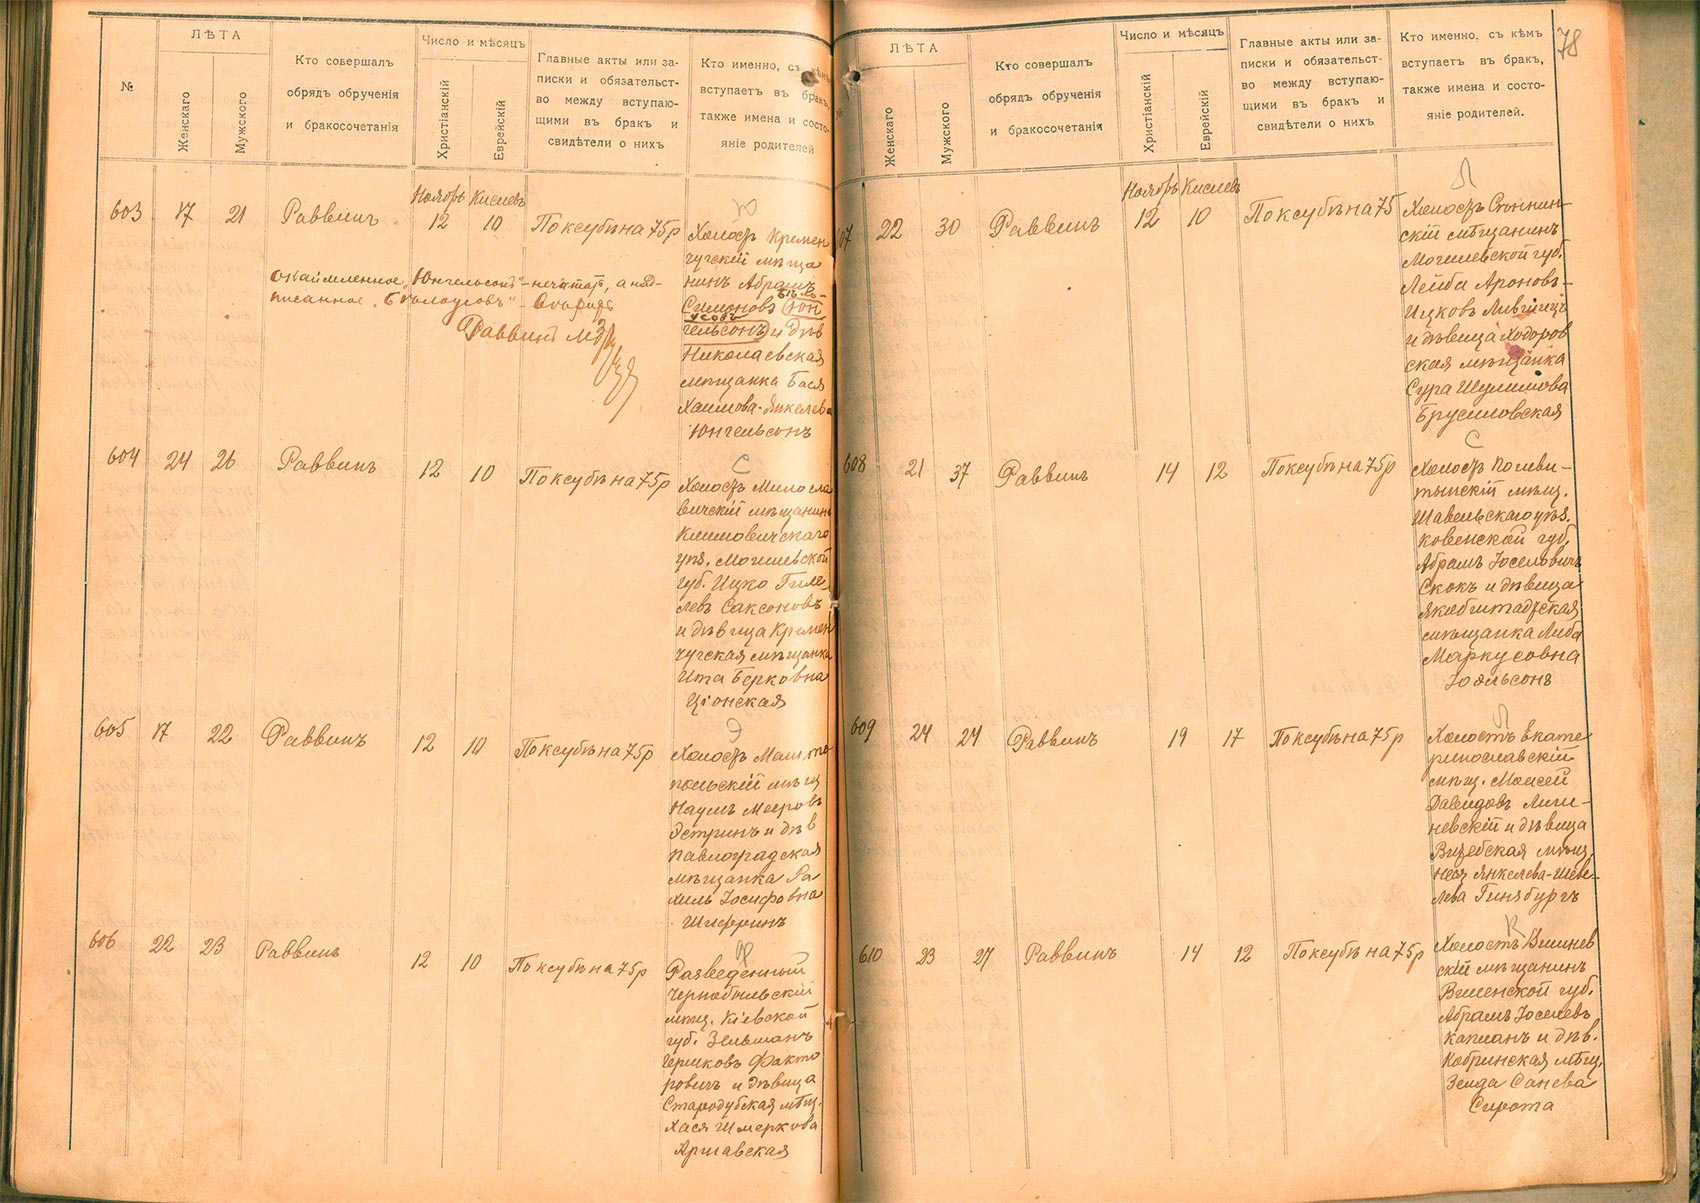 №
ЛѢТА
Женскаго
Мужского
Кто совершалъ
обрядъ обрученія
и бракосочетанія
Число и мѣсяцъ
Христіанскій
Еврейскій
Главные акты или за-
писки и обязательст-
во между вступаю-
щими въ бракъ и
свидѣтели о нихъ
Кто именно, съ кѣмъ
вступаетъ въ бракъ,
также имена и состо-
яніе родителей
Ноябрь Кислевъ
603 17 21 Раввинъ 12 10 По ксубѣ на 75 р
Ю
Холостъ Кремен
чугскій мѣща
нинъ Абрамъ
Бѣло-
Симоновъ Юн
усовъ
гельсонъ и дѣв
Николаевская
мѣщанка Бася
Хаимова-Янкелева
Юнгельсонъ
окаймленное „Юнгельсонъ" - нечитать, а над-
писанное „Бѣлоусовъ" -
Раввинъ
604 24 26 Раввинъ 12 10 По ксубѣ на 75 р
С
Холостъ Милосла
вичскій мѣщанинъ
Климовичскаго
уѣз. Могилевской
губ. Ицко Гиле-
левъ Саксоновъ
и дѣвица Кремен
чугская мѣщанка
Ита Берковна
Ціонская
605 17 22 Раввинъ 12 10 По ксубѣ на 75 р
Э
Холостъ
польскій мѣщ
Наумъ Мееровъ
Эстринъ и дѣв
Павлоградская
мѣщанка Ра
хиль Іосифовна
Шифринъ
606 22 23 Раввинъ 12 10 По ксубѣ на 75 р
Ф
Разведенный
Чернобыльскій
мѣщ. Кіевской
губ. Зельманъ
Гершковъ Факто
ровичъ и дѣвица
Стародубская мѣщ.
Хася Шмеркова
Аршавская
78
№
ЛѢТА
Женскаго
Мужского
Кто совершалъ
обрядъ обрученія
и бракосочетанія
Число и мѣсяцъ
Христіанскій
Еврейскій
Главные акты или за-
писки и обязательст-
во между вступаю-
щими въ бракъ и
свидѣтели о нихъ
Кто именно, съ кѣмъ
вступаетъ въ бракъ,
также имена и состо-
яніе родителей.
Ноябрь Кислевъ
607 22 30 Раввинъ 12 10 По ксубѣ на 75
Л
Холостъ Сѣннин-
скій мѣщанинъ
Могилевской губ.
Лейба Ароновъ-
Ицковъ Лившицъ
и дѣвица Ходоров
ская мѣщанка
Сура Шулимова
Брусиловская
608 21 37 Раввинъ 14 12 По ксубѣ на 75 р
С
Холостъ Поневи-
тынскій мѣщ.
Шавельскаго уѣз.
Ковенской губ.
Абрамъ Іоселовичъ
Скокъ и дѣвица
Якобштадтская
мѣщанка Либа
Маркусовна
Іоэльсонъ
609 24 24 Раввинъ 19 17 По ксубѣ на 75 р
Л
Холостъ Екате
ринославскій
мѣщ. Моисей
Давидовъ Лиги-
невскій и дѣвица
Витебская мѣщ.
Неся Янкелева-Шеве-
лева Гинзбургъ
610 23 27 Раввинъ 14 12 По ксубѣ на 75 р
К
Холостъ Вишнев
скій мѣщанинъ
Виленской губ.
Абрамъ Іоселевъ
Капланъ и дѣв.
Кобринская мѣщ.
Зелда Санева
Сирота